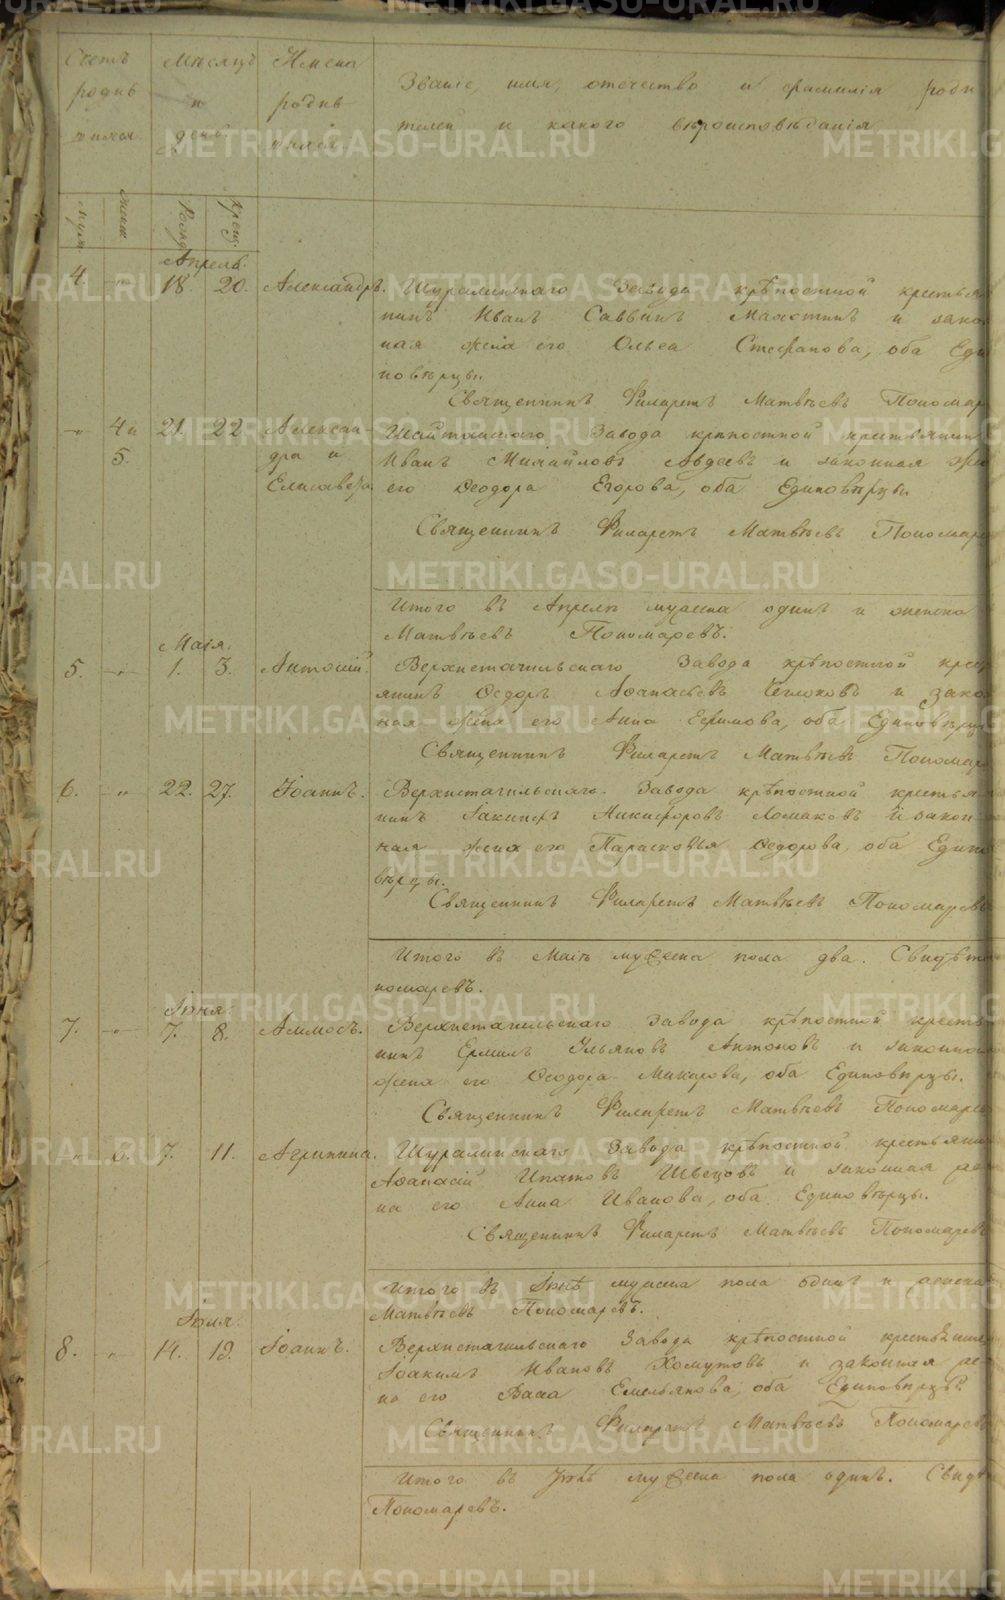 Счетъ родив шихся
Мѣсяцъ и день
Имена родив шихся
Званіе, имя, отечество и фамилія роди
телей и какого вѣроисповѣданія
муж. женс. Рожд. крещ.
Апрель.
4. " 18. 20. Александръ. Шуралинскаго Завода крѣпостной крестья
нинъ Иванъ Саввинъ Махотинъ и закон
ная жена его Ольга Стефанова, оба Еди
новѣрцы.
Священникъ Филаретъ Матвѣевъ Пономар
" 4 и 5. 21. 22. Алексан
дра и
Елисавета
Шайтанскаго Завода крѣпостной крестьянинъ
Иванъ Михайловъ Авдеевъ и законная же
его Ѳеодора Егорова, оба Единовѣрцы
Священникъ Филаретъ Матвѣевъ Пономаре
Итого въ Апрелѣ мужска одинъ и женска
Матвѣевъ Пономаревъ.
Маія.
5. " 1. 3. Антоній. Верхнетагильскаго Завода крѣпостной крес
янинъ Ѳедоръ Аѳанасьевъ и зако
ная жена его Анна Ефимова, оба Единовѣрцы
Священникъ Филаретъ Матвѣевъ Пономар
6. " 22. 27. Іоаннъ. Верхнетагильскаго Завода крѣпостной крестья
нинъ Іакинѳъ Никифоровъ Ломаковъ и закон
ная жена его Парасковья Ѳедорова, оба Едино
вѣрцы.
Священникъ Филаретъ Матвѣевъ Пономаревъ
Итого въ Маіѣ мужеска пола два. Свидѣт
номаревъ.
Іюня.
7. " 7. 8. Аммосъ. Верхнетагильскаго Завода крѣпостной кресть
нинъ Ермилъ Ульяновъ Антоновъ и законная
жена его Ѳеодора Макарова, оба Единовѣрцы.
Священникъ Филаретъ Матвѣевъ Пономаре
" 6. 7. 11. Агрипина. Шуралинскаго Завода крѣпостной крестьянин
Аѳанасій Ипатовъ Швецовъ и законная же
на его Анна Иванова, оба Единовѣрцы.
Священникъ Филаретъ Матвѣевъ Пономаревъ
Итого въ Іюнѣ мужска пола одинъ и женска
Матвѣевъ Пономаревъ.
Іюля.
8. " 14. 19. Іоаннъ. Верхнетагильскаго Завода крѣпостной крестьянин
Іоакимъ Ивановъ Хомутовъ и законная же
на его Васса Емельянова, оба Единовѣрцы.
Священникъ Филаретъ Матвѣевъ Пономаревъ
Итого въ Іюлѣ мужеска пола одинъ. Свидѣ
Пономаревъ.
METRIKI.GASO-URAL.RU